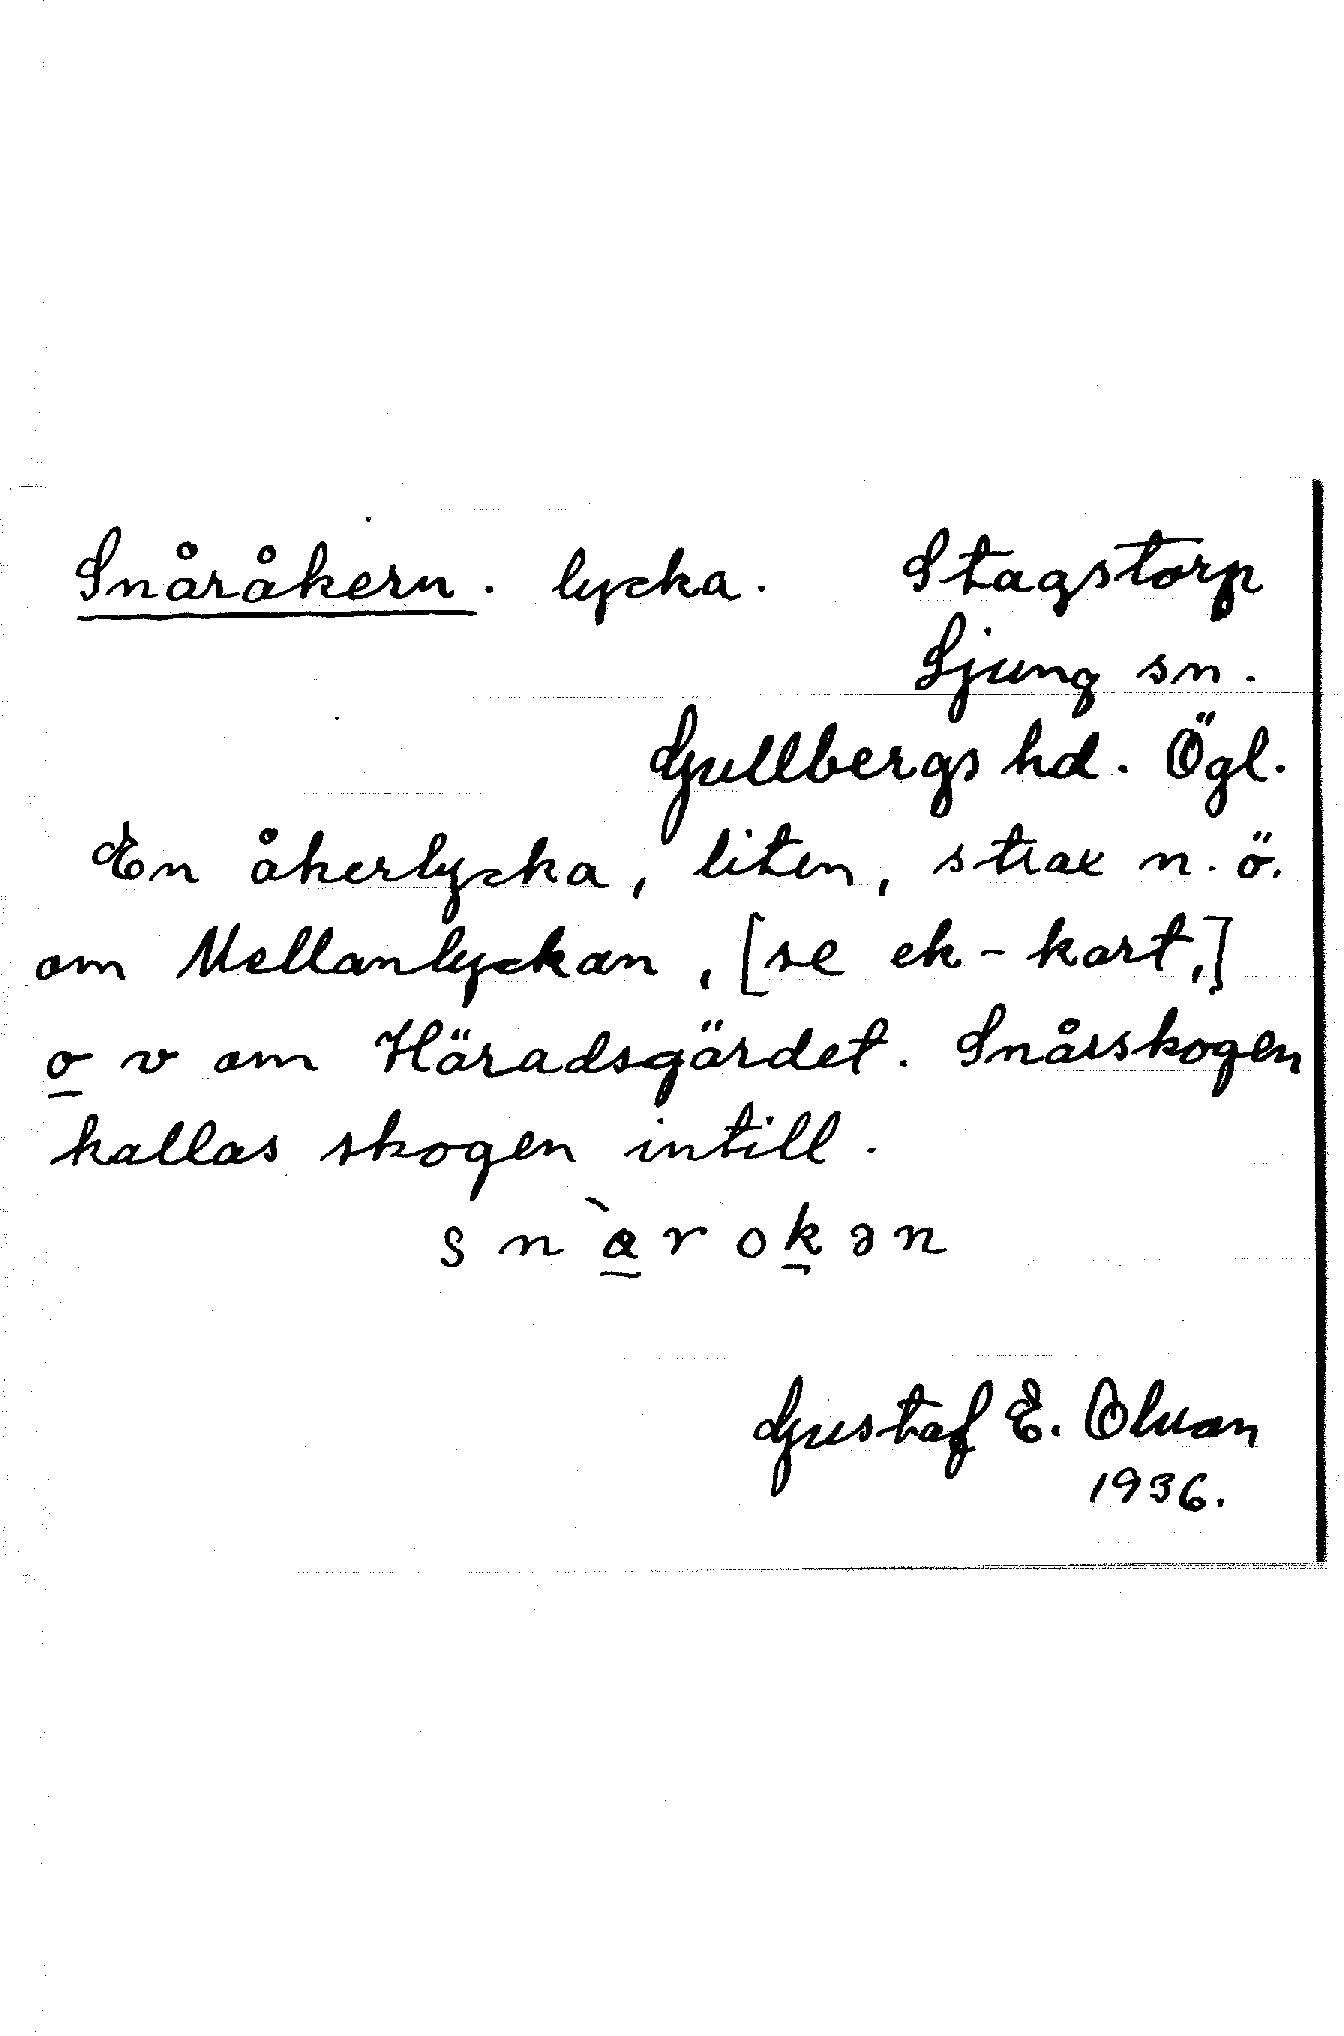 Snåråkern. lycka. Stagstorp
Ljung sn.
Gullbergs hd. Ögl.
En åkerlycka, liten, strax n.ö.
om Mellanlyckan, [se ek-kart,]
o v om Häradsgärdet. Snårskogen
kallas skogen intill.
Gustaf E. Olsson
1936.